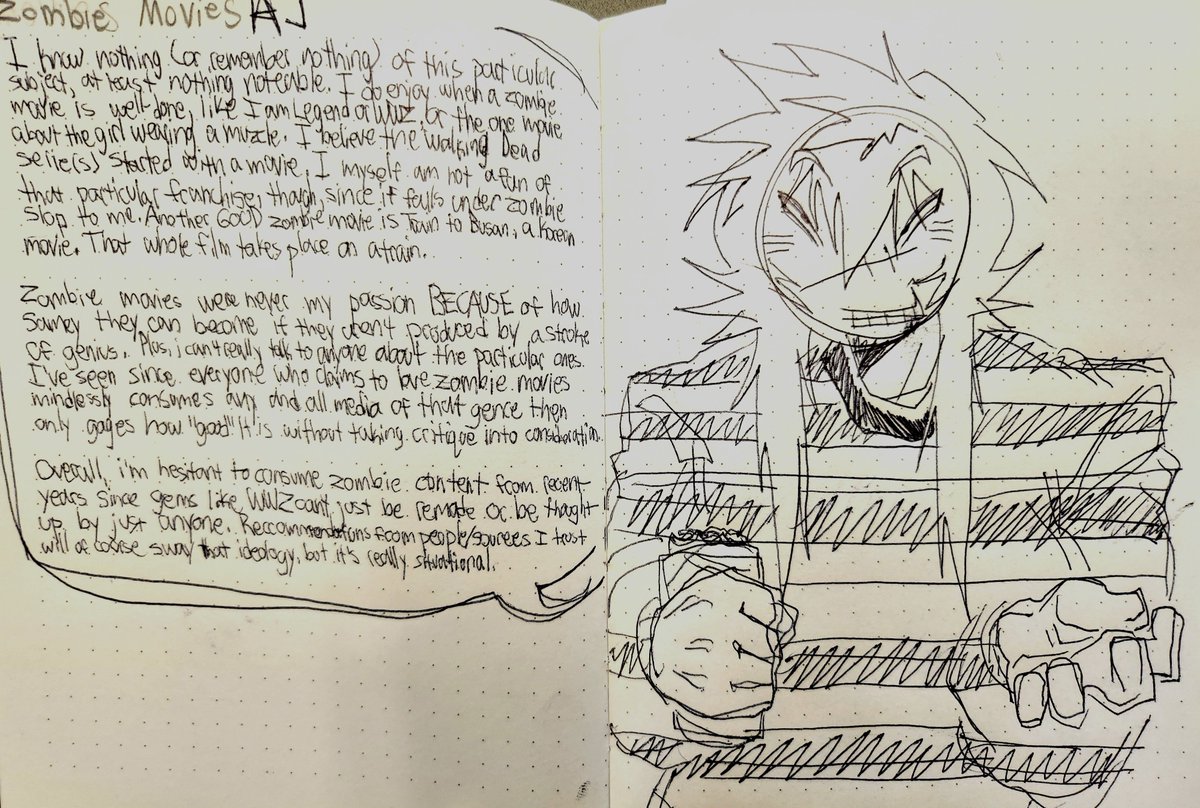 Zombies Movies AJ
I know nothing (or remember nothing) of this particular
subject, at least nothing noteable. I do enjoy when a zombie
movie is well-done, like I am Legend or WWZ, or the one movie
about the girl wearing a muzzle. I believe the Walking Dead
serie(s) started with a movie. I myself am not a fan of
that particular franchise, though, since it falls under zombie
slop to me. Another GOOD zombie movie is Train to Busan, a Korean
movie. That whole film takes place on a train.
Zombie movies were never my passion BECAUSE of how
samey they can become if they aren't produced by a stroke
of genius. Plus, i can't really talk to anyone about the particular ones
I've seen since everyone who claims to love zombie movies
mindlessly consumes any and all media of that genre then
only gages how "good" it is without taking critique into consideration.
Overall, i'm hesitant to consume zombie content from recent
years since gems like WWZ can't just be remade or be thought
up by just anyone. Reccommendations from people/sources I trust
will of course sway that ideology, but it's really situational.